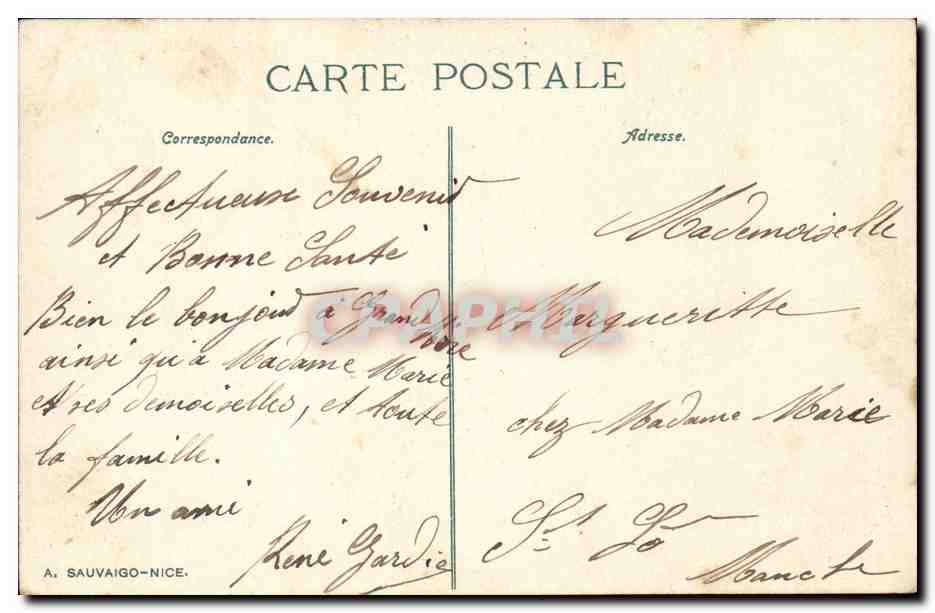 CARTE POSTALE
Correspondance.
Affectueux Souvenir
et Bonne Santé
Bien le bonjour à Grand Mère
ainsi qu'a Madame Marie
et ses demoiselles, et toute
la famille.
Un ami
René Gardie
A. SAUVAIGO-NICE.
Adresse.
Mademoiselle
Margueritte
chez Madame Marie
St. Lô
Manche
CPAPHIL